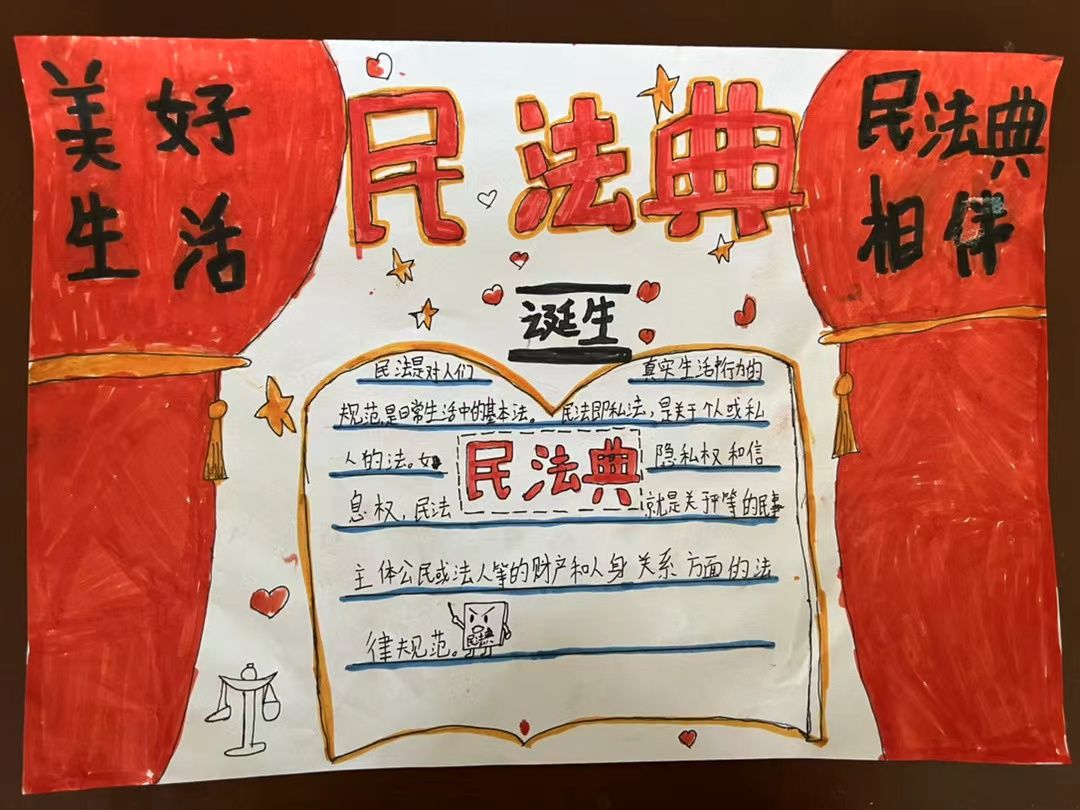 美好
生活
民法典
民法典
相伴
诞生
民法是对人们 真实生活中行为的
规范,是日常生活中的基本法。民法即私法,是关于个人或私
人的法。如 民法典 隐私权和信
息权,民法 就是关于平等的民事
主体公民或法人等的财产和人身关系方面的法
律规范。
民法典